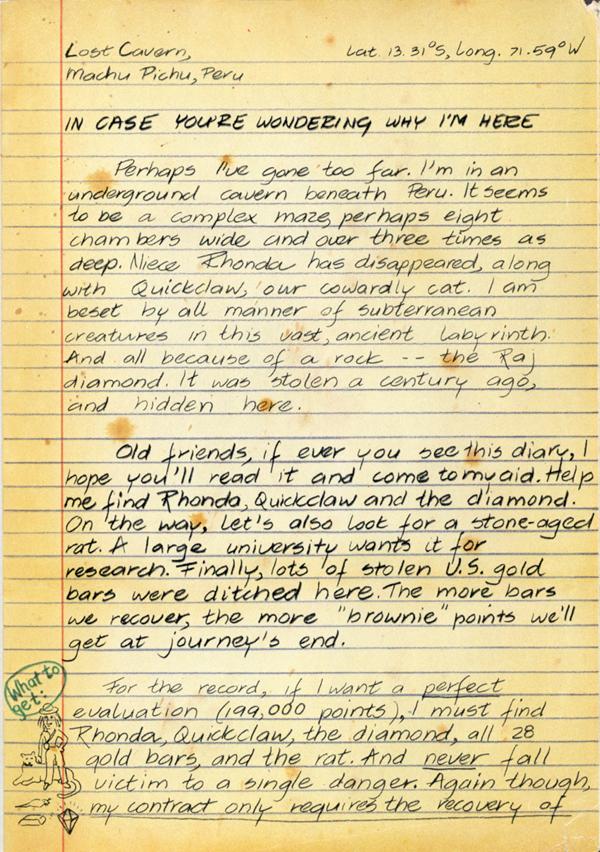 Lost Cavern,
Machu Pichu, Peru
Lat. 13.31°S, Long. 71.59°W
IN CASE YOU'RE WONDERING WHY I'M HERE
Perhaps I've gone too far. I'm in an
underground cavern beneath Peru. It seems
to be a complex maze, perhaps eight
chambers wide and over three times as
deep. Niece Rhonda has disappeared, along
with Quickclaw, our cowardly cat. I am
beset by all manner of subterranean
creatures in this vast, ancient labyrinth.
And all because of a rock -- the Raj
diamond. It was stolen a century ago,
and hidden here.
Old friends, if ever you see this diary, I
hope you'll read it and come to my aid. Help
me find Rhonda, Quickclaw and the diamond.
On the way, let's also look for a stone-aged
rat. A large university wants it for
research. Finally, lots of stolen U.S. gold
bars were ditched here. The more bars
we recover, the more "brownie" points we'll
get at journey's end.
What to
get:
For the record, if I want a perfect
evaluation (199,000 points), I must find
Rhonda, Quickclaw, the diamond, all 28
gold bars, and the rat. And never fall
victim to a single danger. Again though,
my contract only requires the recovery of